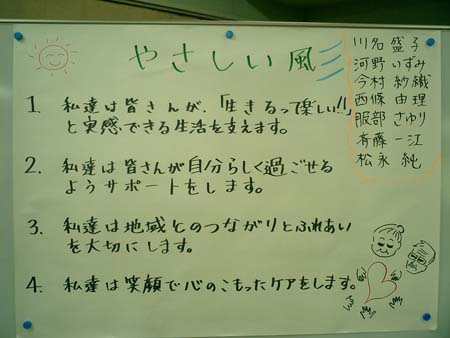 やさしい風
1. 私達は皆さんが、「生きるって楽しい!!」
と実感できる生活を支えます。
2. 私達は皆さんが自分らしく過ごせる
ようサポートをします。
3. 私達は地域とのつながりとふれあい
を大切にします。
4. 私達は笑顔で心のこもったケアをします。
川名 盛子
河野 いずみ
今村 紗織
西條 由理
服部 さゆり
斉藤 一江
松永 純